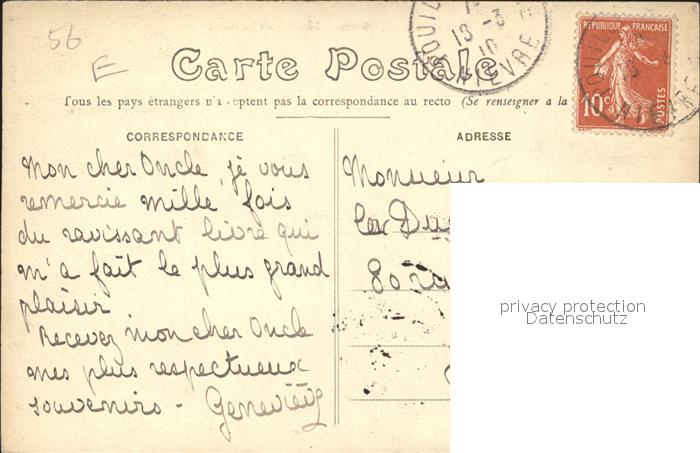 56
E
Carte Postale
Tous les pays étrangers n'acceptent pas la correspondance au recto (Se renseigner à la
RÉPUBLIQUE FRANÇAISE
10c
POSTES
13 -3
10
NIEVRE
CORRESPONDANCE
ADRESSE
Mon cher Oncle, je vous
remercie mille fois
du ravissant livre qui
m'a fait le plus grand
plaisir
Recevez mon cher Oncle
mes plus respectueux
souvenirs - Geneviève
Monsieur
80 ru
privacy protection
Datenschutz